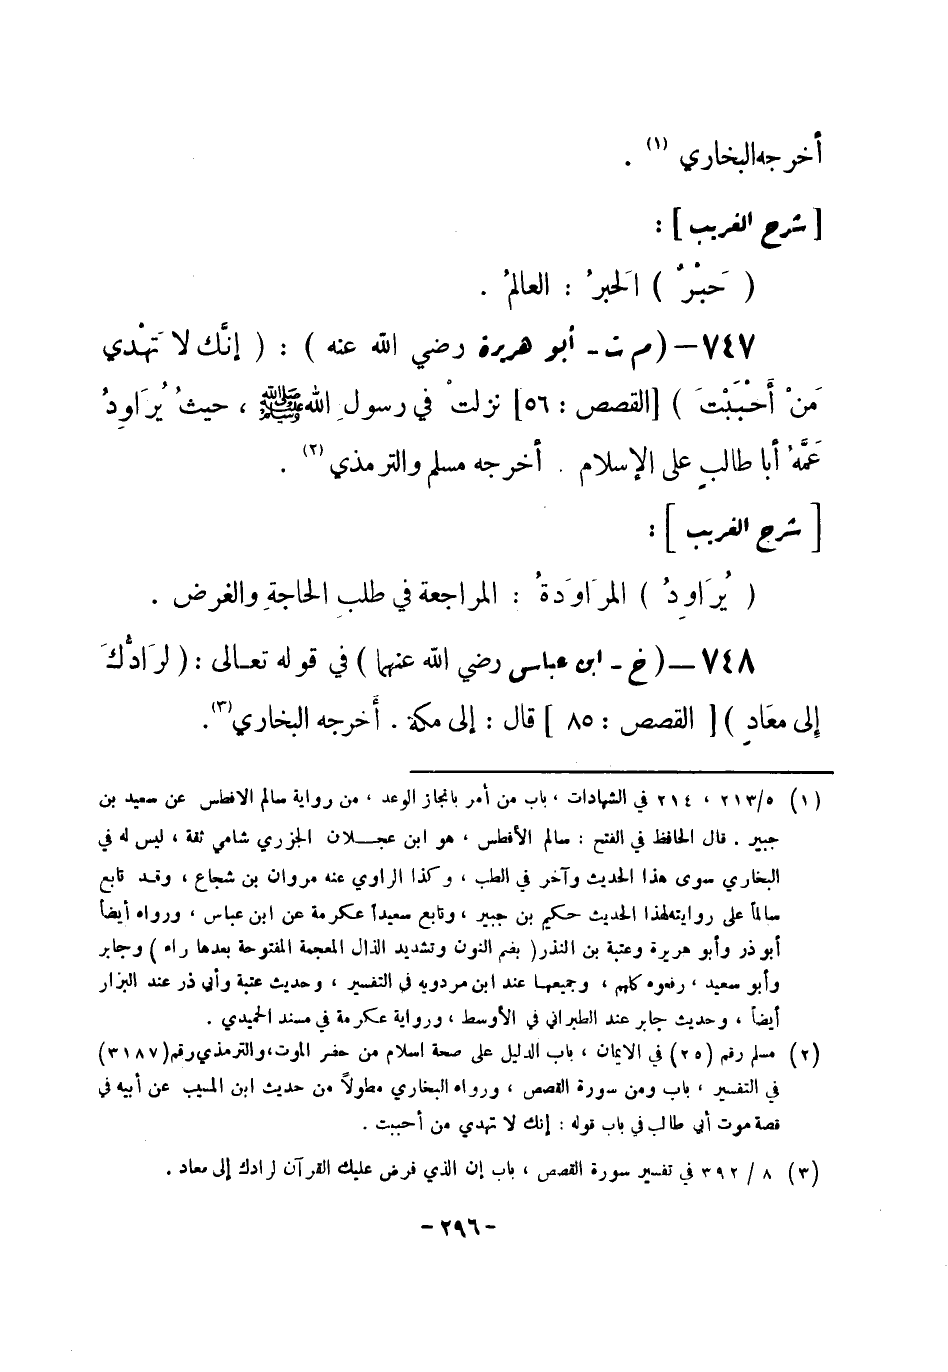 أخرجه البخاري (١) .
[ شرح الغريب ] :
( حَبْرٌ ) الحَبرُ : العالمُ .
٧٤٧ – ( م ت - أبو هريرة رضي الله عنه ) : ( إنَّك لا تَهْدي
مَنْ أَحْبَبْتَ ) [القصص : ٥٦] نزلتْ في رسولِ الله ﷺ ، حيثُ يُرَاوِدُ
عَمَّهُ أبا طالبٍ على الإسلام . أخرجه مسلم والترمذي (٢) .
[ شرح الغريب ] :
( يُرَاوِدُ ) المرَاوَدةُ : المراجعة في طلبِ الحاجةِ والغرض .
٧٤٨ – ( خ - ابن عباس رضي الله عنهما ) في قوله تعالى : ( لرَادُّكَ
إلى معَادٍ ) [ القصص : ٨٥ ] قال : إلى مكة . أَخرجه البخاري (٣) .
(١) ٢١٣/٥ ، ٢١٤ في الشهادات ، باب من أمر بانجاز الوعد ، من رواية سالم الافطس عن سعيد بن
جبير . قال الحافظ في الفتح : سالم الأفطس ، هو ابن عجلان الجزري شامي ثقة ، ليس له في
البخاري سوى هذا الحديث وآخر في الطب ، وكذا الراوي عنه مروان بن شجاع ، وقد تابع
سالماً على روايته لهذا الحديث حكيم بن جبير ، وتابع سعيداً عكرمة عن ابن عباس ، ورواه أيضاً
أبو ذر وأبو هريرة وعتبة بن النذر ( بضم النون وتشديد الذال المعجمة المفتوحة بعدها راء ) وجابر
وأبو سعيد ، رفعوه كلهم ، وجميعها عند ابن مردويه في التفسير ، وحديث عتبة وأبي ذر عند البزار
أيضاً ، وحديث جابر عند الطبراني في الأوسط ، ورواية عكرمة في مسند الحميدي .
(٢) مسلم رقم (٢٥) في الايمان ، باب الدليل على صحة اسلام من حضر الموت، والترمذي رقم (٣١٨٧)
في التفسير ، باب ومن سورة القصص ، ورواه البخاري مطولاً من حديث ابن المسيب عن أبيه في
قصة موت أبي طالب في باب قوله : إنك لا تهدي من أحببت .
(٣) ٨ / ٣٩٢ في تفسير سورة القصص ، باب إن الذي فرض عليك القرآن لرادك إلى معاد .
- ٢٩٦ -